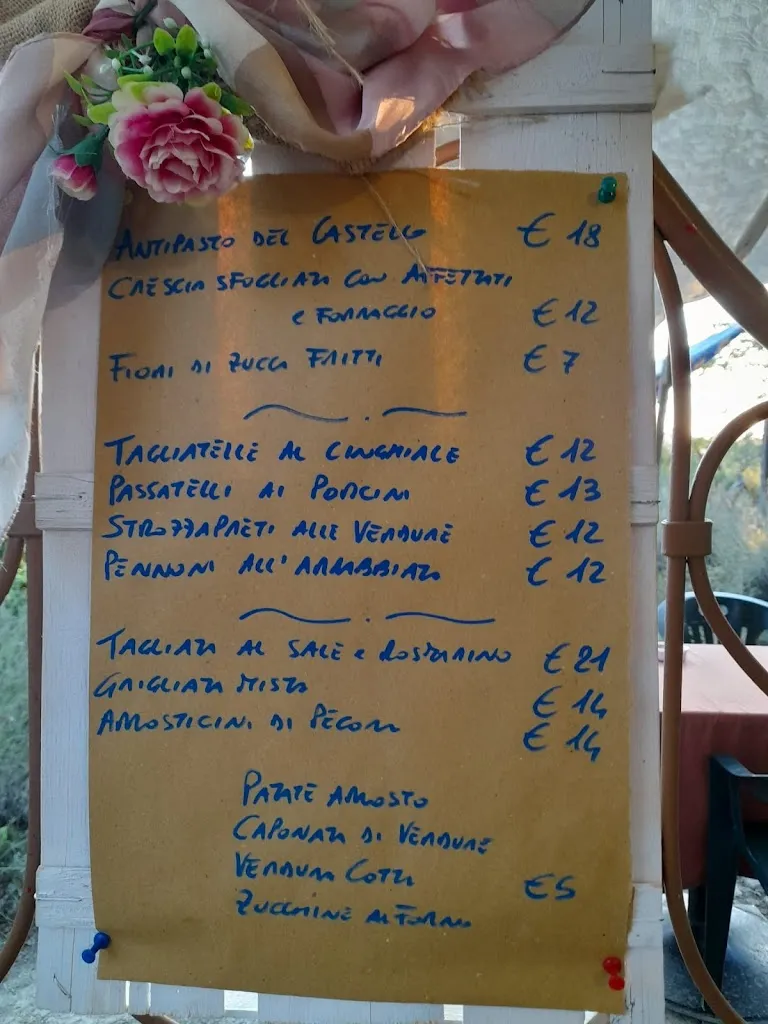 ANTIPASTO DEL CASTELLO € 18
CRESCIA SFOGLIATA CON AFFETTATI
e FORMAGGIO € 12
FIORI DI ZUCCA FRITTI € 7
TAGLIATELLE AL CINGHIALE € 12
PASSATELLI AI PORCINI € 13
STROZZAPRETI ALLE VERDURE € 12
PENNONI ALL'ARRABBIATA € 12
TAGLIATA AL SALE e ROSMARINO € 21
GRIGLIATA MISTA € 14
ARROSTICINI DI PECORA € 14
PATATE ARROSTO
CAPONATA DI VERDURE
VERDURA COTTA € 5
ZUCCHINE AL FORNO